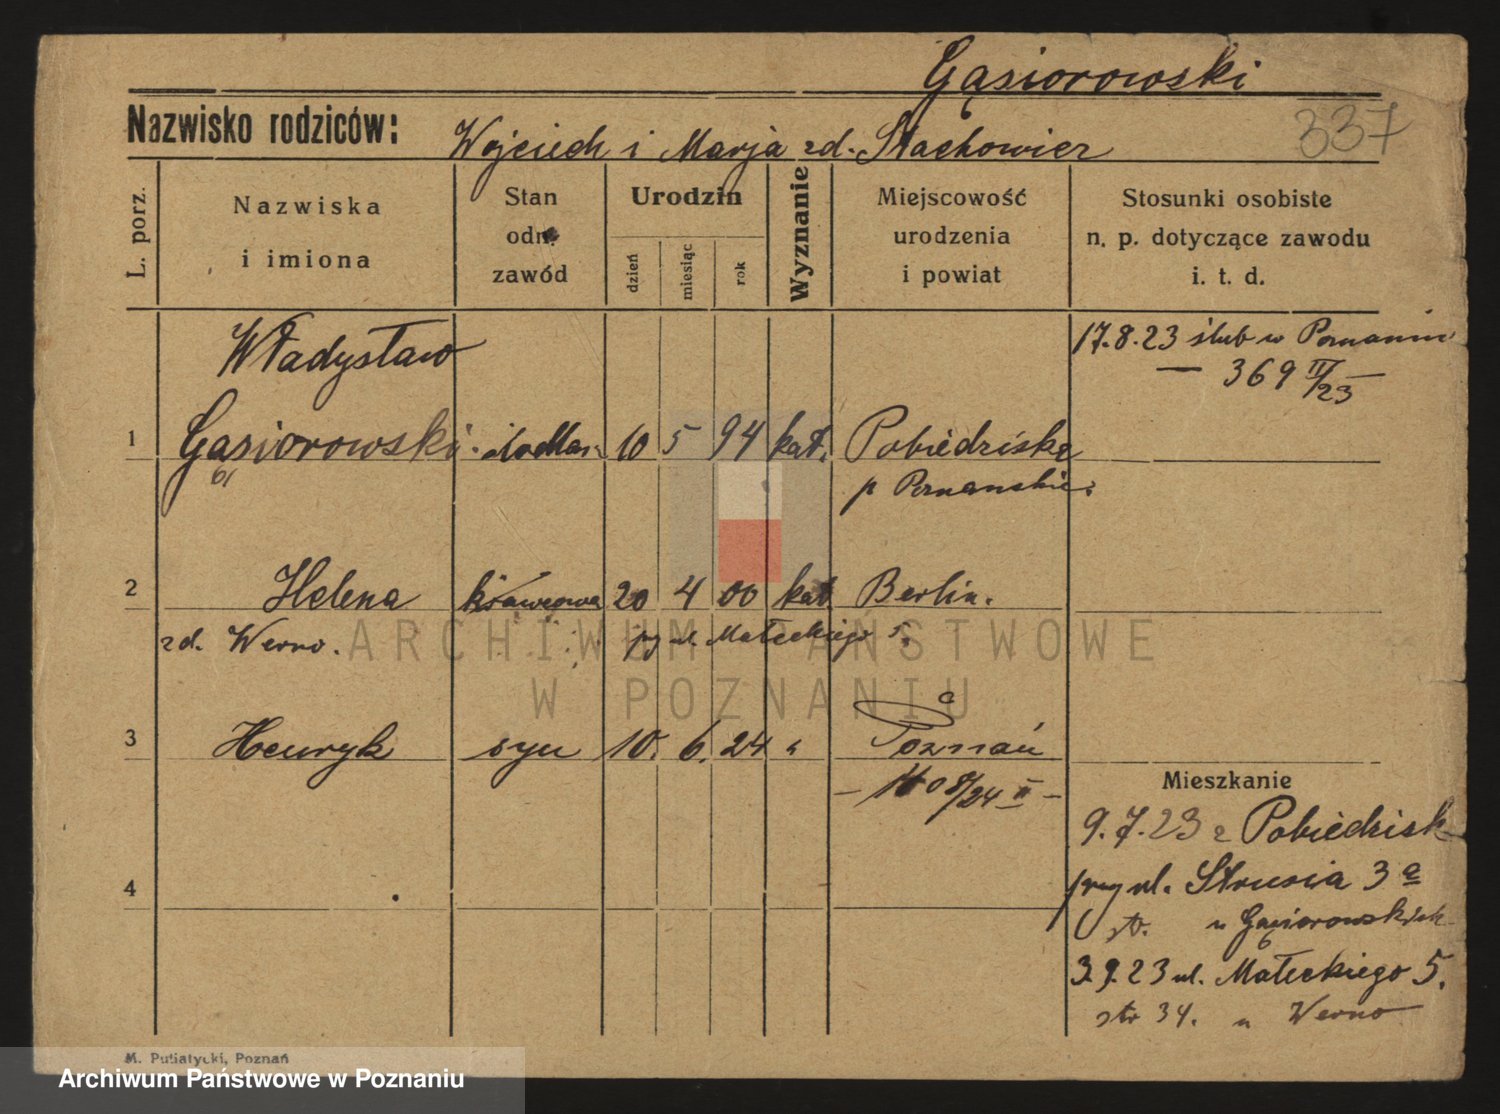 Gąsiorowski
337
Nazwisko rodziców: Wojciech i Marja zd. Stachowicz
L. porz.
Nazwiska
i imiona
Stan
odn.
zawód
Urodzin
dzień
miesiąc
rok
Wyznanie
Miejscowość
urodzenia
i powiat
Stosunki osobiste
n. p. dotyczące zawodu
i. t. d.
Władysław
17.8.23 ślub w Poznaniu
— 369 II/23 —
1 Gąsiorowski siodlarz 10 5 94 kat. Pobiedziska
p Poznańskie
2 Helena krawcowa 20 4 00 kat Berlin.
zd. Werno. przy ul. Małeckiego 5.
3 Henryk syn 10. 6. 24 " Poznań
8/24 II —
Mieszkanie
9.7.23 z Pobiedzisk
przy ul. Strusia 3a
u Gąsiorowskich
4
3.9.23 ul. Małeckiego 5.
str 34. u Werno
M. Putiatycki, Poznań
ARCHIWUM PAŃSTWOWE
W POZNANIU
Archiwum Państwowe w Poznaniu